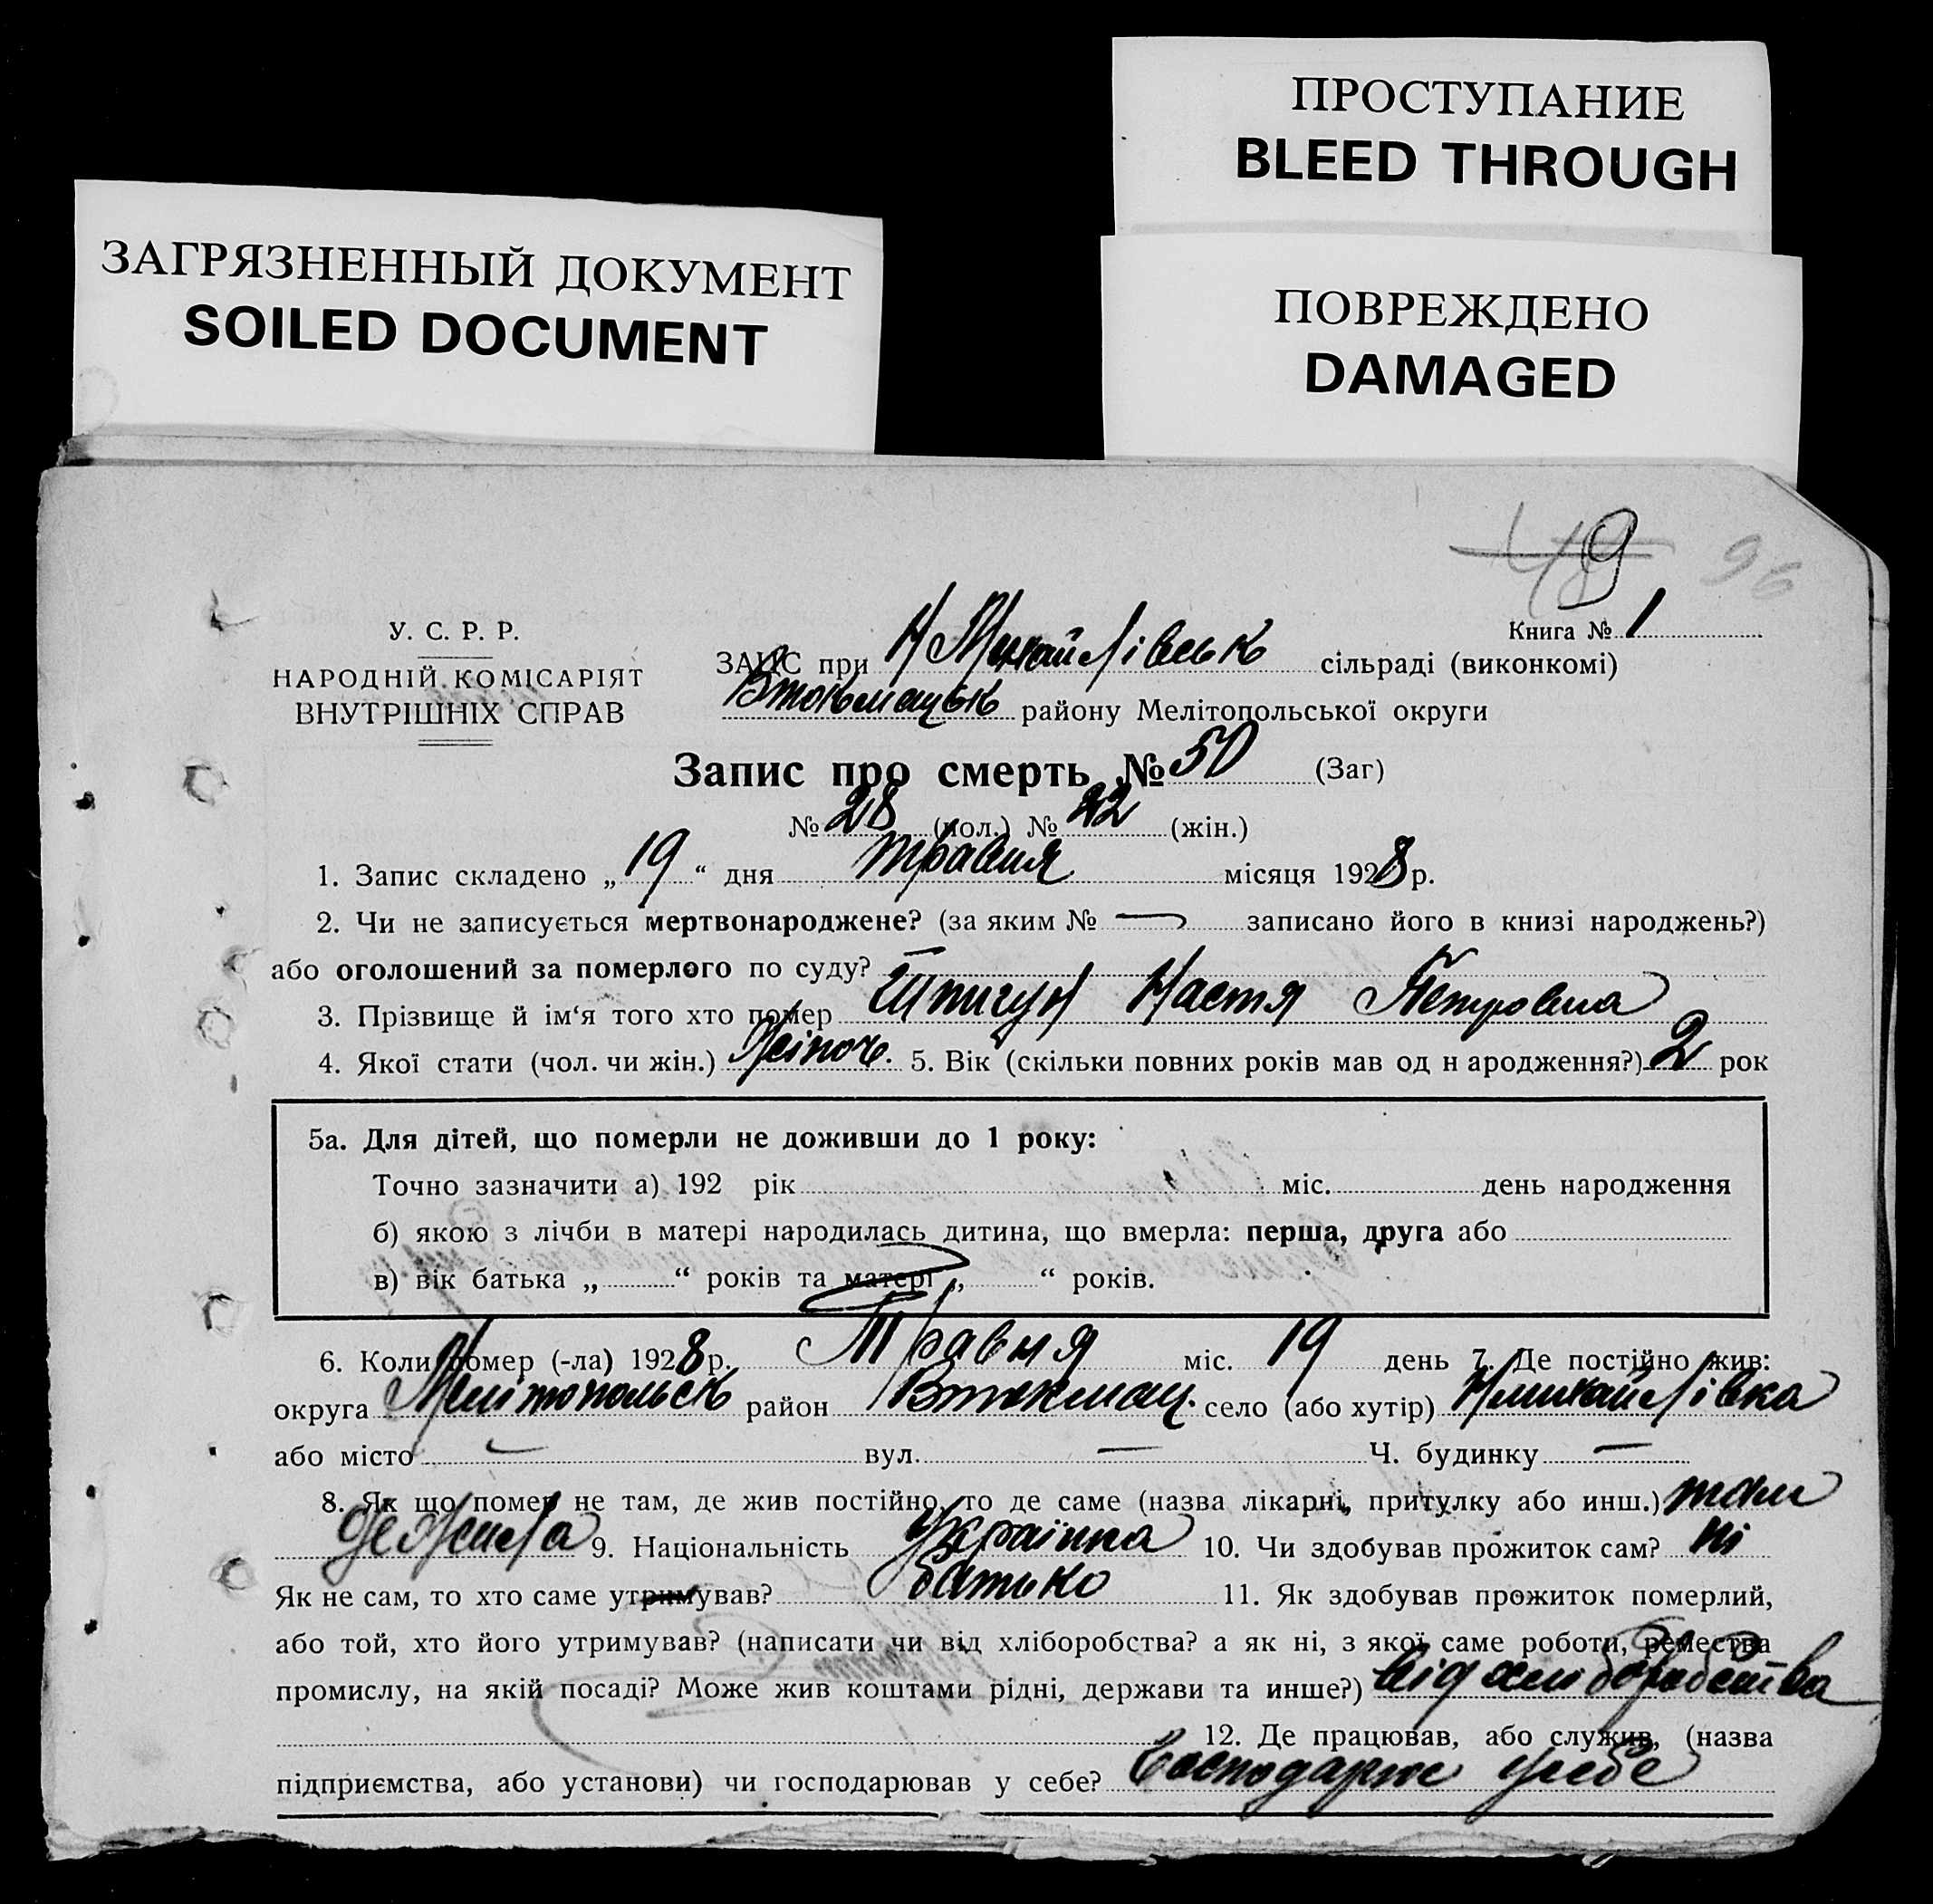 ПРОСТУПАНИЕ
BLEED THROUGH
ЗАГРЯЗНЕННЫЙ ДОКУМЕНТ
SOILED DOCUMENT
ПОВРЕЖДЕНО
DAMAGED
49 96
Книга № 1
У. С. Р. Р.
НАРОДНІЙ КОМІСАРІЯТ
ВНУТРІШНІХ СПРАВ
ЗАПИС при Н Михайлівськ сільраді (виконкомі)
Втокмацьк району Мелітопольської округи
Запис про смерть № 50 (Заг)
№ 28 (чол.) № 22 (жін.)
1. Запис складено „19“ дня травня місяця 1928 р.
2. Чи не записується мертвонароджене? (за яким № — записано його в книзі народжень?)
або оголошений за померлого по суду? —
3. Прізвище й ім‘я того хто помер Шпигун Настя Петровна
4. Якої стати (чол. чи жін.) Жіноч. 5. Вік (скільки повних років мав од н ародження?) 2 рок
5а. Для дітей, що померли не доживши до 1 року:
Точно зазначити а) 192 рік міс. день народження
б) якою з лічби в матері народилась дитина, що вмерла: перша, друга або
в) вік батька „ “ років та матері „ “ років.
6. Коли помер (-ла) 1928 р. Травня міс. 19 день 7. Де постійно жив:
округа Мелітопольск район Втокмац. село (або хутір) Нмихайлівка
або місто — вул. — Ч. будинку —
8. Як що помер не там, де жив постійно, то де саме (назва лікарні, притулку або инш.) там
де жила 9. Національність Українка 10. Чи здобував прожиток сам? ні
Як не сам, то хто саме утримував? батько 11. Як здобував прожиток померлий,
або той, хто його утримував? (написати чи від хліборобства? а як ні, з якої саме роботи, ремества
промислу, на якій посаді? Може жив коштами рідні, держави та инше?) від хліборобства
12. Де працював, або служив, (назва
підприємства, або установи) чи господарював у себе? Господарює у себе